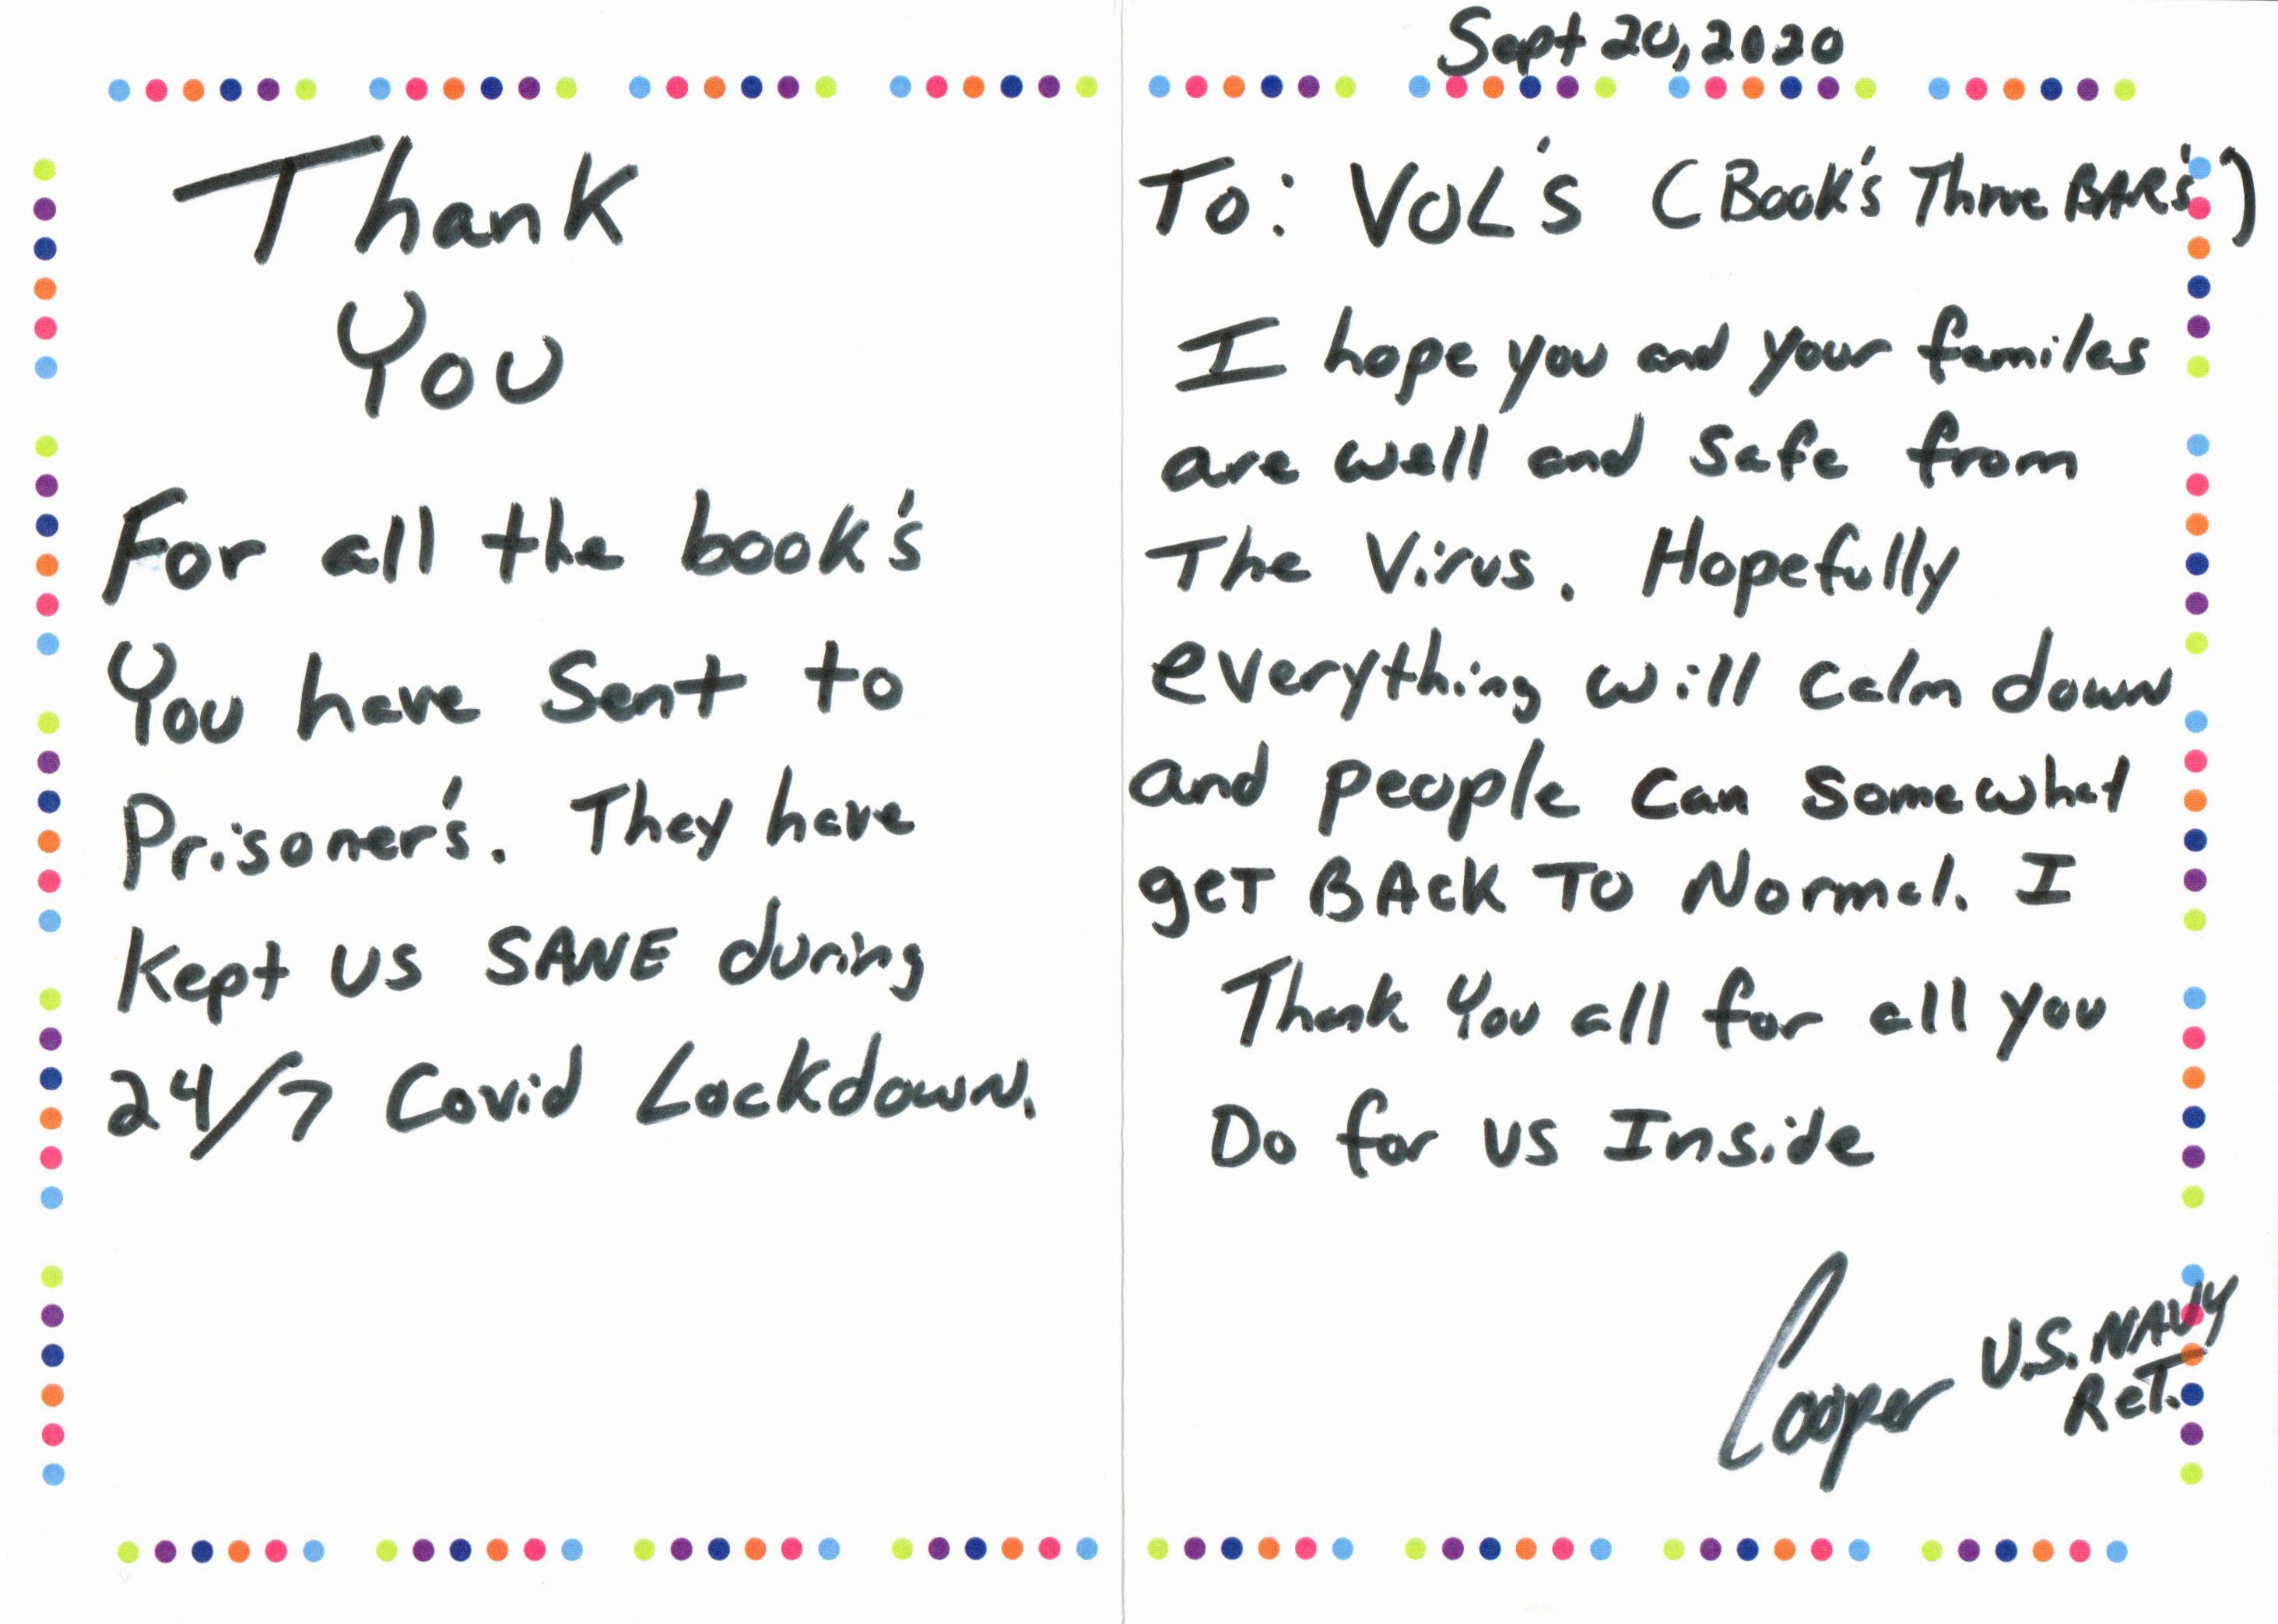 Thank
You
For all the book's
You have Sent to
Prisoner's. They have
Kept us SANE during
24/7 Covid Lockdown.
Sept 20, 2020
To: VOL's (Book's Thrue BAR's)
I hope you and your familes
are well and safe from
The Virus. Hopefully
everything will calm down
and people can somewhat
get BACK TO Normal. I
Thank You all for all you
Do for us Inside
Cooper U.S. NAVY
RET.